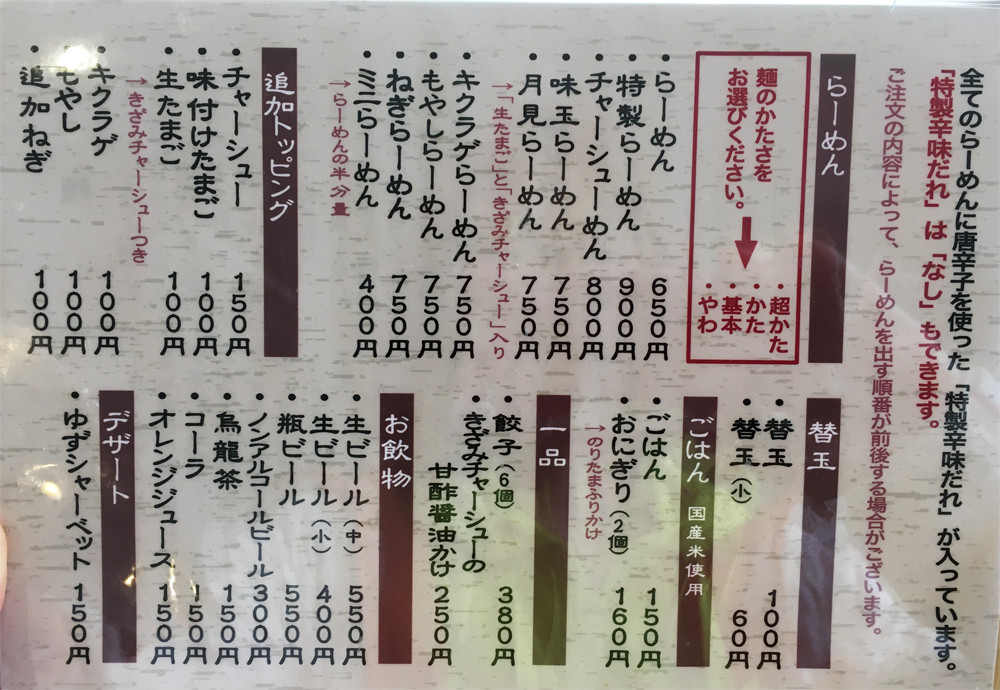 全てのらーめんに唐辛子を使った「特製辛味だれ」が入っています。
「特製辛味だれ」は「なし」もできます。
ご注文の内容によって、らーめんを出す順番が前後する場合がございます。
らーめん
麺のかたさを
お選びください。
・超かた
・かた
・基本
・やわ
・らーめん 650円
・特製らーめん 900円
・チャーシューめん 800円
・味玉らーめん 750円
・月見らーめん 750円
→「生たまご」と「きざみチャーシュー」入り
・キクラゲらーめん 750円
・もやしらーめん 750円
・ねぎらーめん 750円
・ミニらーめん 400円
→らーめんの半分量
追加トッピング
・チャーシュー 150円
・味付けたまご 100円
・生たまご 100円
→きざみチャーシューつき
・キクラゲ 100円
・もやし 100円
・追加ねぎ 100円
替玉
・替玉 100円
・替玉(小) 60円
ごはん 国産米使用
・ごはん 150円
・おにぎり(2個) 160円
→のりたまふりかけ
一品
・餃子(6個) 380円
・きざみチャーシューの
甘酢醤油かけ 250円
お飲物
・生ビール(中) 550円
・生ビール(小) 400円
・瓶ビール 550円
・ノンアルコールビール 300円
・烏龍茶 150円
・コーラ 150円
・オレンジジュース 150円
デザート
・ゆずシャーベット 150円